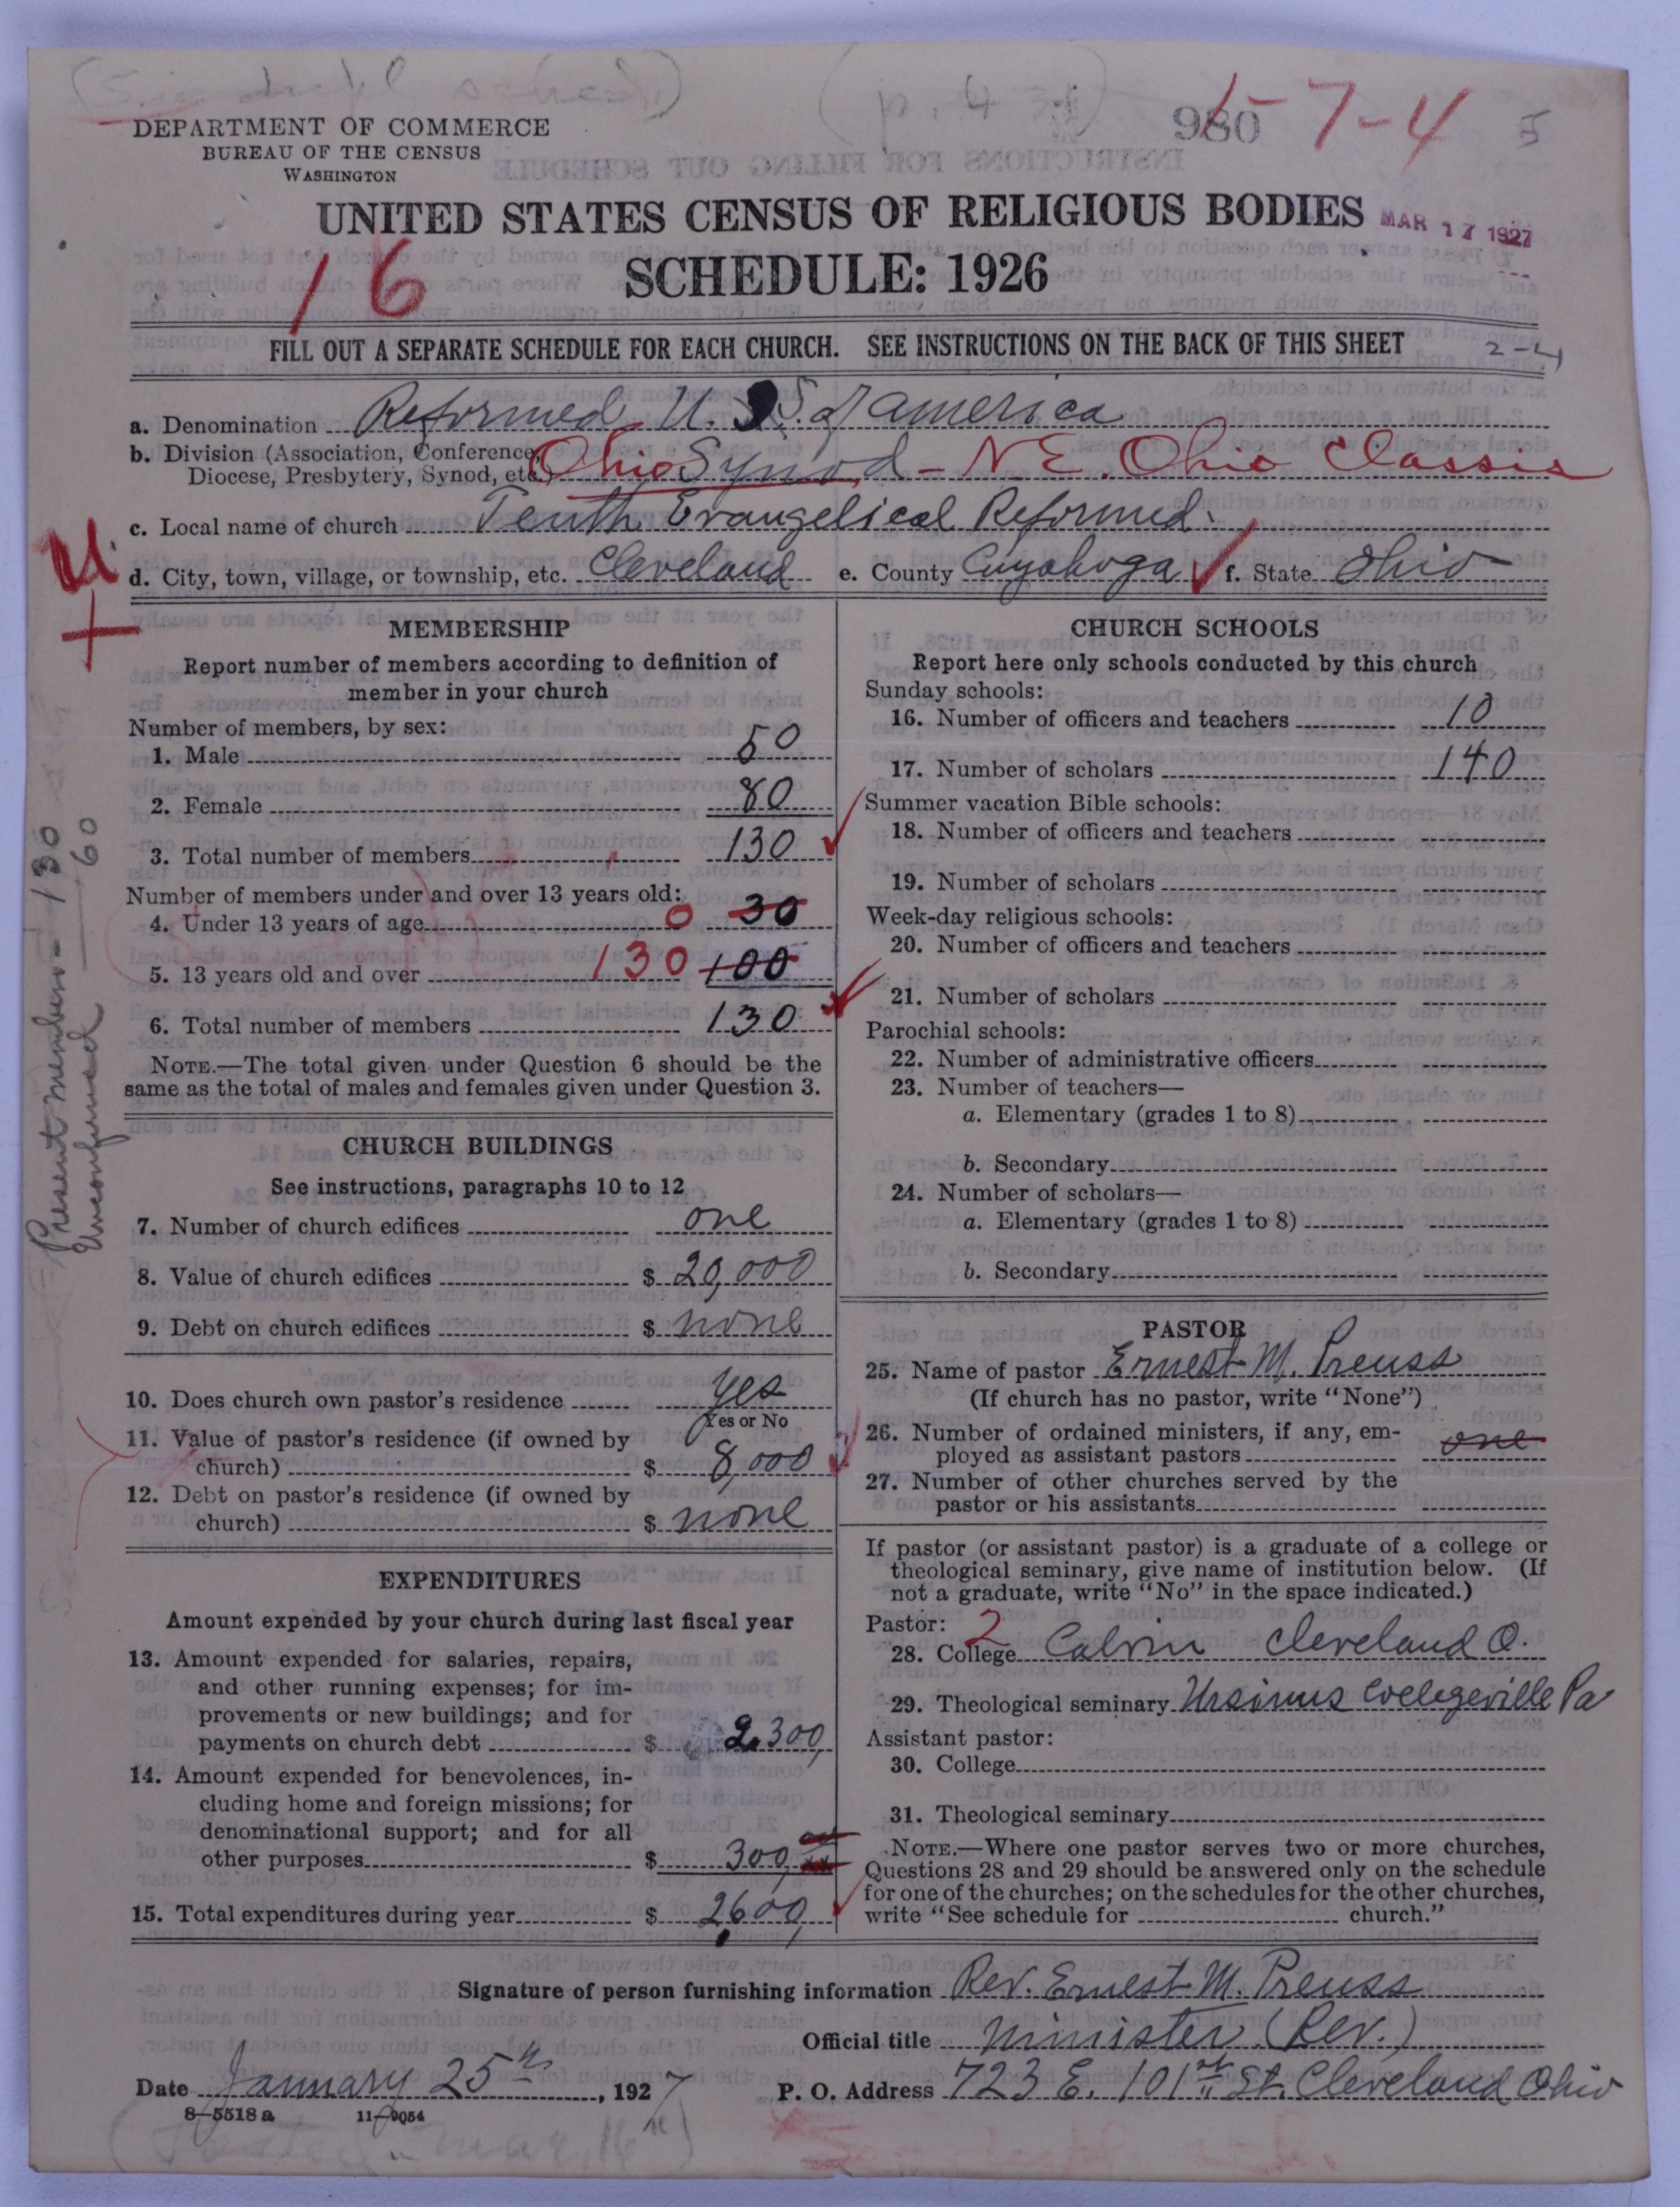 DEPARTMENT OF COMMERCE
BUREAU OF THE CENSUS
WASHINGTON
980 1-7-4 5
UNITED STATES CENSUS OF RELIGIOUS BODIES
MAR 17 1927
SCHEDULE: 1926
16
FILL OUT A SEPARATE SCHEDULE FOR EACH CHURCH. SEE INSTRUCTIONS ON THE BACK OF THIS SHEET 2-4
a. Denomination Reformed U. S. of America
b. Division (Association, Conference,
Diocese, Presbytery, Synod, etc.) Ohio Synod - N.E. Ohio Classis
c. Local name of church Tenth Evangelical Reformed.
d. City, town, village, or township, etc. Cleveland e. County Cuyahoga f. State Ohio
U
MEMBERSHIP
Report number of members according to definition of
member in your church
Number of members, by sex:
1. Male 50
2. Female 80
3. Total number of members 130
Number of members under and over 13 years old:
4. Under 13 years of age 0 30
5. 13 years old and over 130 100
6. Total number of members 130
NOTE.—The total given under Question 6 should be the
same as the total of males and females given under Question 3.
Present members - 130
Unconfirmed 60
CHURCH BUILDINGS
See instructions, paragraphs 10 to 12
7. Number of church edifices one
8. Value of church edifices $ 20,000
9. Debt on church edifices $ none
10. Does church own pastor's residence yes
Yes or No
11. Value of pastor's residence (if owned by
church) $ 8,000
12. Debt on pastor's residence (if owned by
church) $ none
EXPENDITURES
Amount expended by your church during last fiscal year
13. Amount expended for salaries, repairs,
and other running expenses; for im-
provements or new buildings; and for
payments on church debt $ 2,300
14. Amount expended for benevolences, in-
cluding home and foreign missions; for
denominational support; and for all
other purposes $ 300
15. Total expenditures during year $ 2600
CHURCH SCHOOLS
Report here only schools conducted by this church
Sunday schools:
16. Number of officers and teachers 10
17. Number of scholars 140
Summer vacation Bible schools:
18. Number of officers and teachers
19. Number of scholars
Week-day religious schools:
20. Number of officers and teachers
21. Number of scholars
Parochial schools:
22. Number of administrative officers
23. Number of teachers—
a. Elementary (grades 1 to 8)
b. Secondary
24. Number of scholars—
a. Elementary (grades 1 to 8)
b. Secondary
PASTOR
25. Name of pastor Ernest M. Preuss
(If church has no pastor, write "None")
26. Number of ordained ministers, if any, em-
ployed as assistant pastors one
27. Number of other churches served by the
pastor or his assistants
If pastor (or assistant pastor) is a graduate of a college or
theological seminary, give name of institution below. (If
not a graduate, write "No" in the space indicated.)
Pastor: 2
28. College Calvin Cleveland O.
29. Theological seminary Ursinus Collegeville Pa
Assistant pastor:
30. College
31. Theological seminary
NOTE.—Where one pastor serves two or more churches,
Questions 28 and 29 should be answered only on the schedule
for one of the churches; on the schedules for the other churches,
write "See schedule for church."
Signature of person furnishing information Rev. Ernest M. Preuss
Official title Minister (Rev.)
Date January 25th, 1927 P. O. Address 723 E. 101st St. Cleveland Ohio
8-5518 a 11-9054